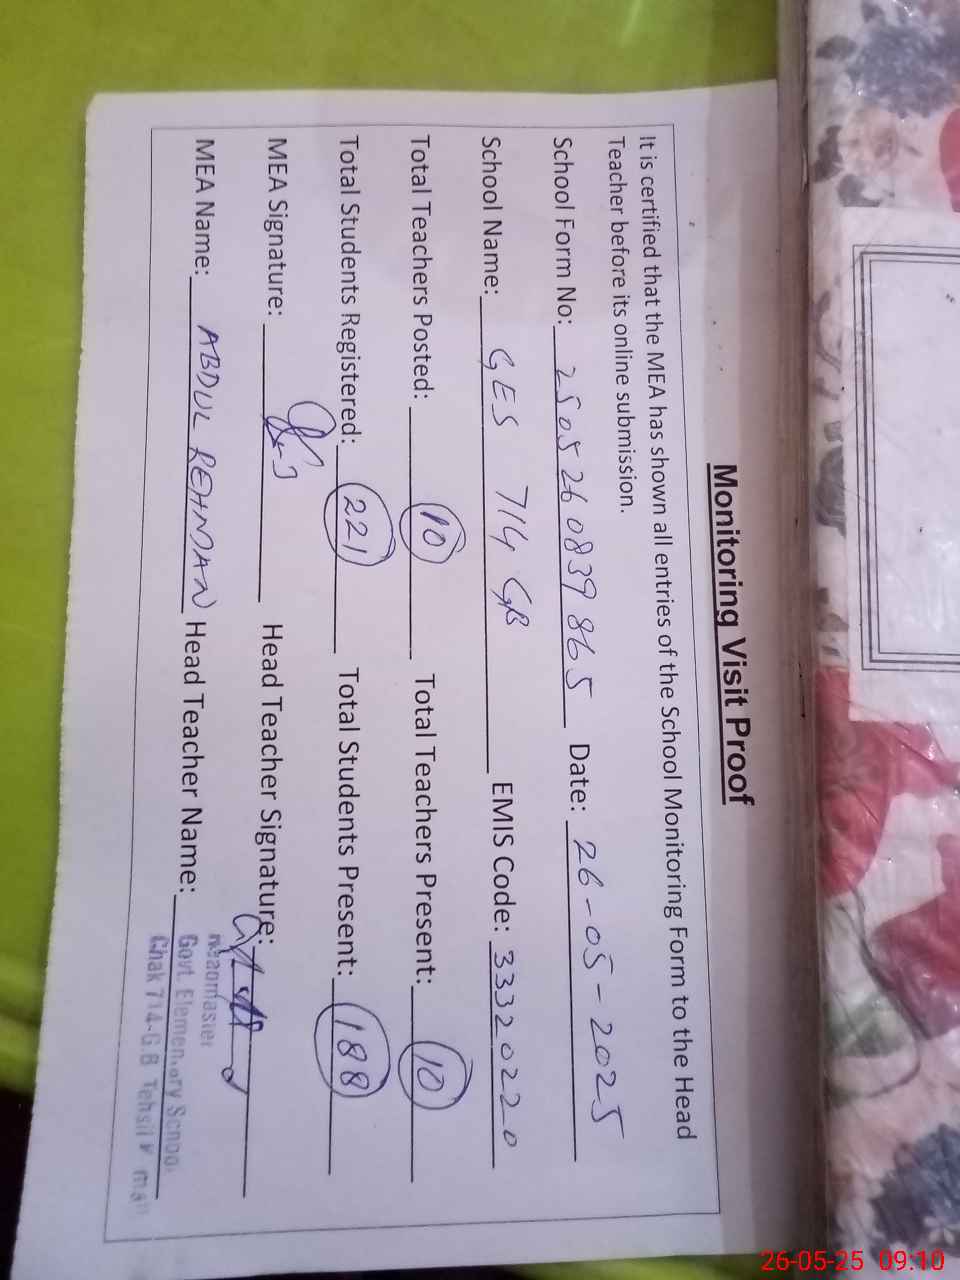 Monitoring Visit Proof
It is certified that the MEA has shown all entries of the School Monitoring Form to the Head
Teacher before its online submission.
School Form No: 2505260839865 Date: 26-05-2025
School Name: GES 714 GB EMIS Code: 33320220
Total Teachers Posted: 10 Total Teachers Present: 10
Total Students Registered: 221 Total Students Present: 188
MEA Signature: Head Teacher Signature:
MEA Name: ABDUL REHMAN Head Teacher Name:
Headmaster
Govt. Elementary School
Chak 714-G.B Tehsil
26-05-25 09:10